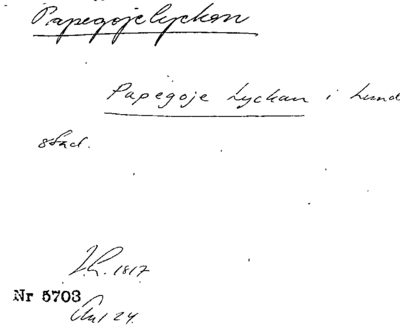 Papegojelyckan
Papegoje Lyckan i Lund
stad.
1817
Nr 5703
24.